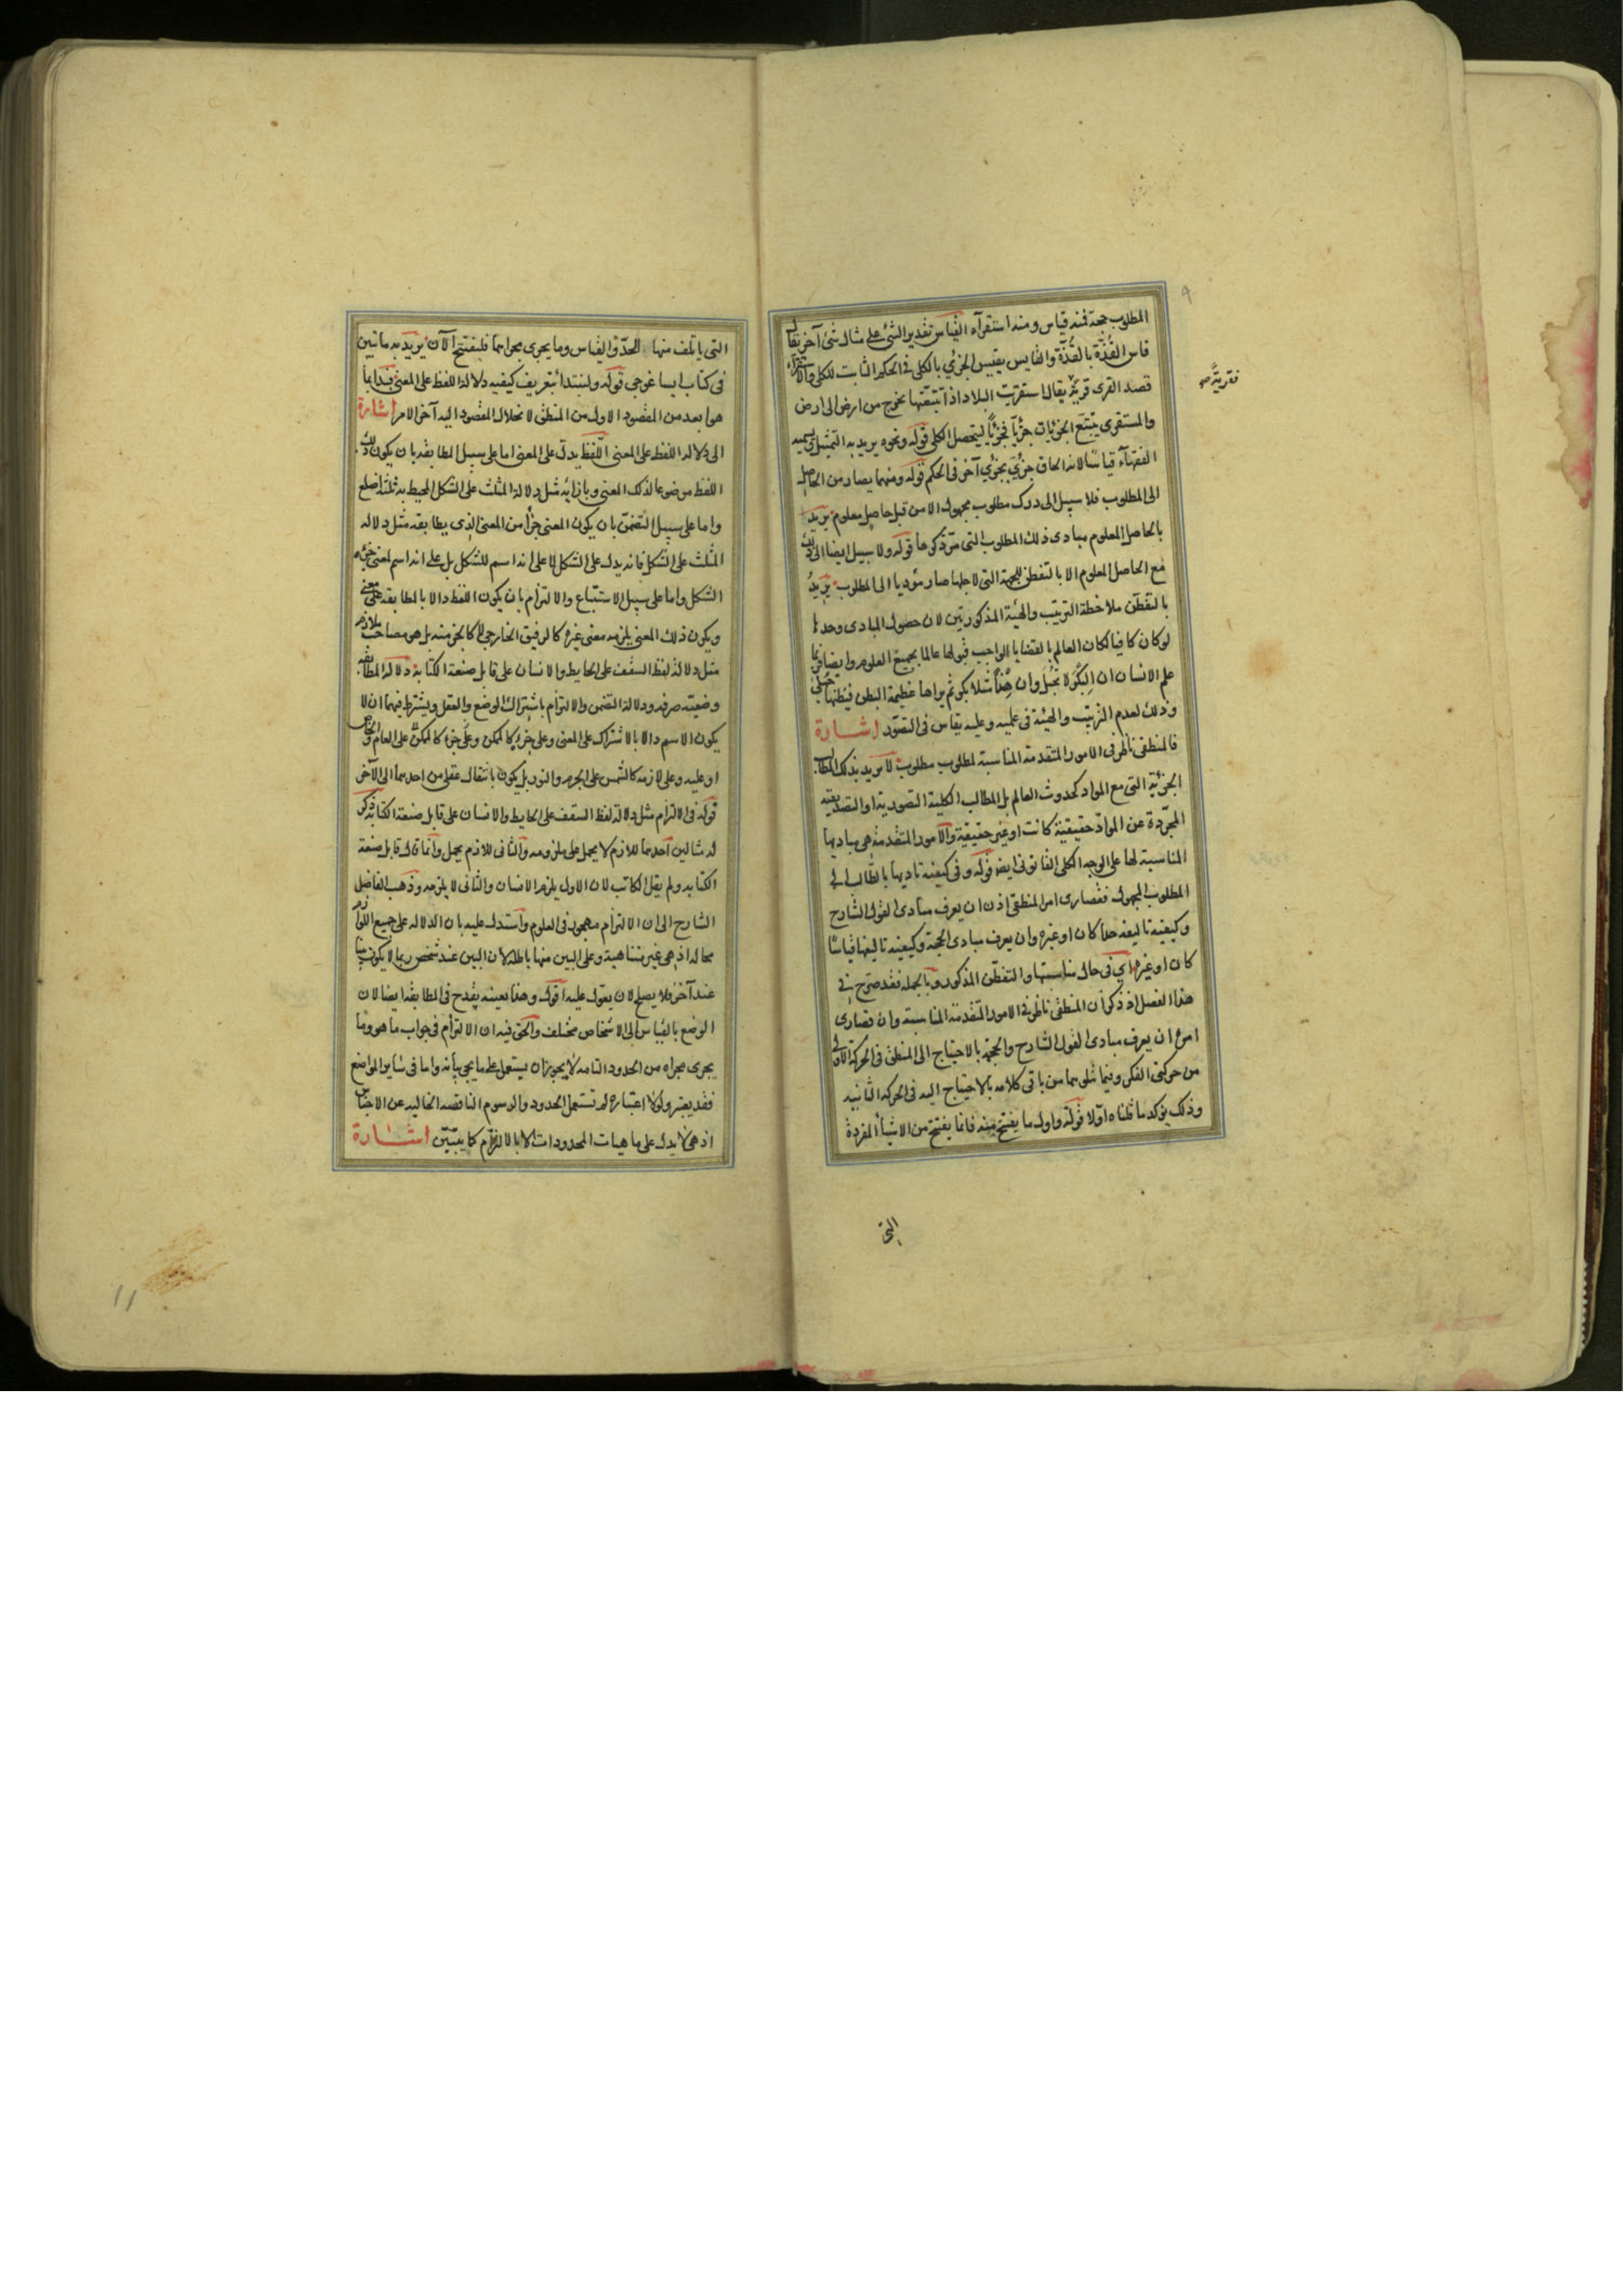 المطلوب حجة فمنه قياس ومنه استقرآء القياس تقدير الشئ على مثال شئ آخر يقال
قاس القُذّة بالقُذّة والقايس يقيس الجزئي بالكلى فى الحكم الثابت للكلى والاستقراء
قصد القرى قرية يقال استقريت البلاد اذا تتبعتها تخرج من ارض الى ارض
فقرية صح
والمستقرى يتتبع الجزئيات جزئيا فجزئيا ليتحصل الكلى قوله ونحوه يريد به التمثيل يسميه
الفقهآء قياسا لانه الحاق جزئي بجزئي آخر فى الحكم قوله ومنهما يصار من الحاصل
الى المطلوب فلا سبيل الى درك مطلوب مجهول الا من قبل حاصل معلوم يريد
بالحاصل المعلوم مبادى ذلك المطلوب التى مرّ ذكرها قوله ولا سبيل ايضا الى ذلك
مع الحاصل المعلوم الا بالتفطن للجهة التى لاجلها صار مؤديا الى المطلوب يريد
بالتفطن ملاحظة الترتيب والهيئة المذكورتين لان حصول المبادى وحدها
لو كان كافيا لكان العالم بالقضايا الواجب قبولها عالما بجميع العلوم وايضا فربما
علم الانسان ان البكر لا تحبل وان هندا مثلا بكر ثم يراها عظيمة البطن فيظنها حبلى
وذلك لعدم الترتيب والهيئة فى علميه وعليه يقاس فى التصوّر اشارة
فالمنطقى ناظر فى الامور المتقدمة المناسبة لمطلوب مطلوب لا يريد بذلك المطالب
الجزئية التى مع المواد كحدوث العالم بل المطالب الكلية التصورية او التصديقيه
المجرّدة عن الموادّ حقيقية كانت او غير حقيقية والامور المتقدمة هى مباديها
المناسبة لها على الوجه الكلى القانونى ايضا قوله وفى كيفية تاديها بالطالب الى
المطلوب المجهول فقصارى امر المنطقى اذن ان يعرف مبادى القول الشارح
وكيفية تاليفه حدا كان او غيره وان يعرف مبادى الحجة وكيفية تاليفها قياسا
كان او غيره اي فى حال مناسبتها والتفطن المذكور وبالجمله فقد صرّح فى
هذا الفصل اذ ذكر ان المنطقى ناظر فى الامور المتقدمة المناسبة وان قصارى
امره ان يعرف مبادى القول الشارح والحجة بالاحتياج الى المنطق فى الحركة الاولى
من حركتى الفكر وفيما سلى بما من باقى كلامه بالاحتياج اليه فى الحركة الثانيه
وذلك يؤكد ما قلناه اوّلا قوله واول ما يفتتح منه فانما يفتتح من الاشيآء المفردة
التى
التى ياتلف منها الحدّ والقياس وما يجرى مجراهما فلنفتتح الآن يريد به ما تبين
فى كتاب ايساغوجى قوله ولنبتدأ بتعريف كيفيه دلالة اللفظ على المعنى فبدا بما
هو ابعد من المقصود الاول من المنطق لانحلال المقصود اليه آخر الامر اشارة
الى دلالة اللفظ على المعنى اللفظ يدل على المعنى اما على سبيل المطابقه بان يكون ذلك
اللفظ موضوعا لذلك المعنى وبازائه مثل دلالة المثلث على الشكل المحيط به ثلثة اضلع
واما على سبيل التضمن بان يكون المعنى جزأ من المعنى الذى يطابقه مثل دلاله
المثلث على الشكل فانه يدل على الشكل لا على انه اسم للشكل بل على انه اسم لمعنى جزئه
الشكل واما على سبيل الاستتباع والالتزام بان يكون اللفظ دالا بالمطابقه على معنى
ويكون ذلك المعنى يلزمه معنى غيره كالرفيق الخارجى لا كالجزء منه بل هو مصاحب ملازم
مثل دلالة لفظ السقف على الحايط والانسان على قابل صنعة الكتابة دلالة المطابقه
وضعيّه صرفه ودلالة التضمن والالتزام باشتراك الوضع والعقل ويشترط فيهما ان لا
يكون الاسم دالا بالاشتراك على المعنى وعلى جزئه كالممكن وعلى جزئه كالممكن على العام والخاص
او عليه وعلى لازمه كالشمس على الجرم والنور بل يكون بانتقال عقلى من احدهما الى الآخر
قوله فى الالتزام مثل دلالة لفظ السقف على الحايط والانسان على قابل صنعة الكتابة ذكر
له مثالين احدهما للازم لا يحمل على ملزومه والثانى للازم يحمل وانما قال قابل صنعة
الكتابه ولم يقل الكاتب لان الاول يلزم الانسان والثانى لا يلزمه وذهب الفاضل
الشارح الى ان الالتزام مهجور فى العلوم واستدل عليه بان الدلاله على جميع اللوازم
محاله اذ هى غير متناهية وعلى البين منها باطله لان البين عند شخص ربما لا يكون بينا
عند آخر فلا يصلح لان يعوّل عليه اقول وهذا بعينه يقدح فى المطابقه ايضا لان
الوضع بالقياس الى الاشخاص مختلف والحق فيه ان الالتزام فى جواب ما هو وما
يجرى مجراه من الحدود التامه لا يجوز ان يستعمل على ما يجى بيانه واما فى ساير المواضع
فقد يعتبر ولولا اعتباره لم تستعمل الحدود والرسوم الناقصه الخاليه عن الاجناس
اذ هى لا يدل على ماهيات المحدودات الا بالالتزام كما يتبيّن اشارة